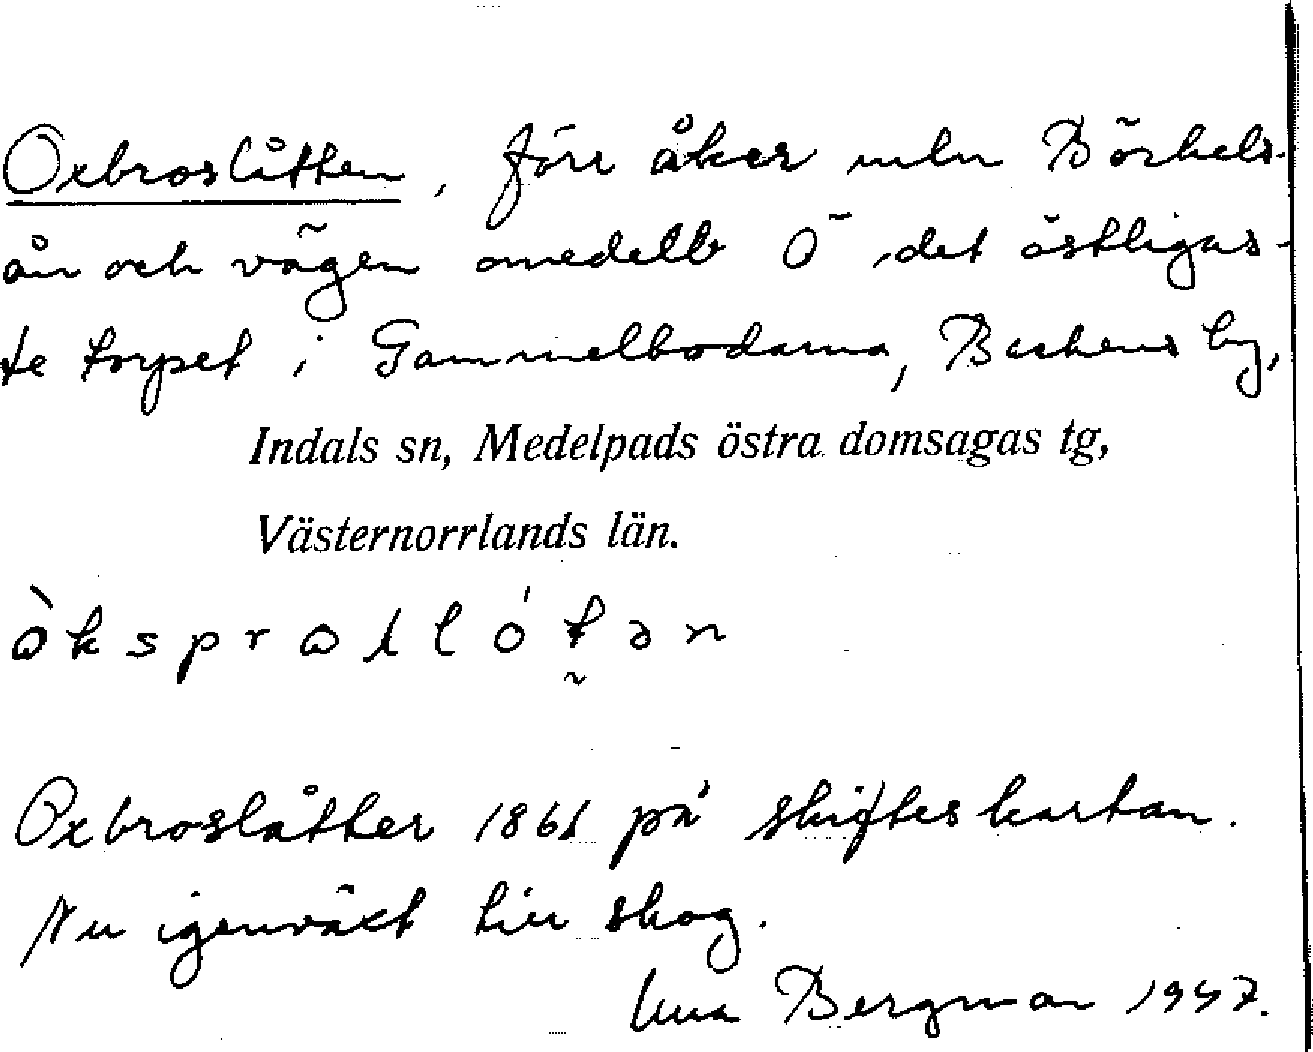 Oxbroslåtten, förr åker mln Börkels-
ån och vägen omedelb Ö det östligas-
te torpet i Gammelbodarna, Backens by,
Indals sn, Medelpads östra domsagas tg,
Västernorrlands län.
Oxbroslåtter 1861 på skifteskartan.
Nu igenväxt till skog.
Bergman 1947.